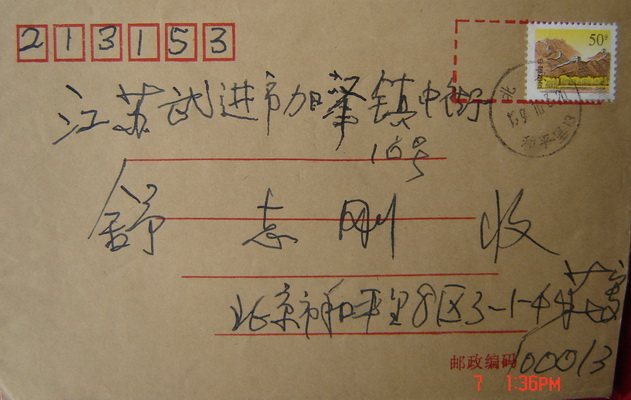 213153
50分
江苏武进市加肇镇中街
16号
舒志刚 收
北京市和平里8区3-1-44
邮政编码 100013
7 1:36PM